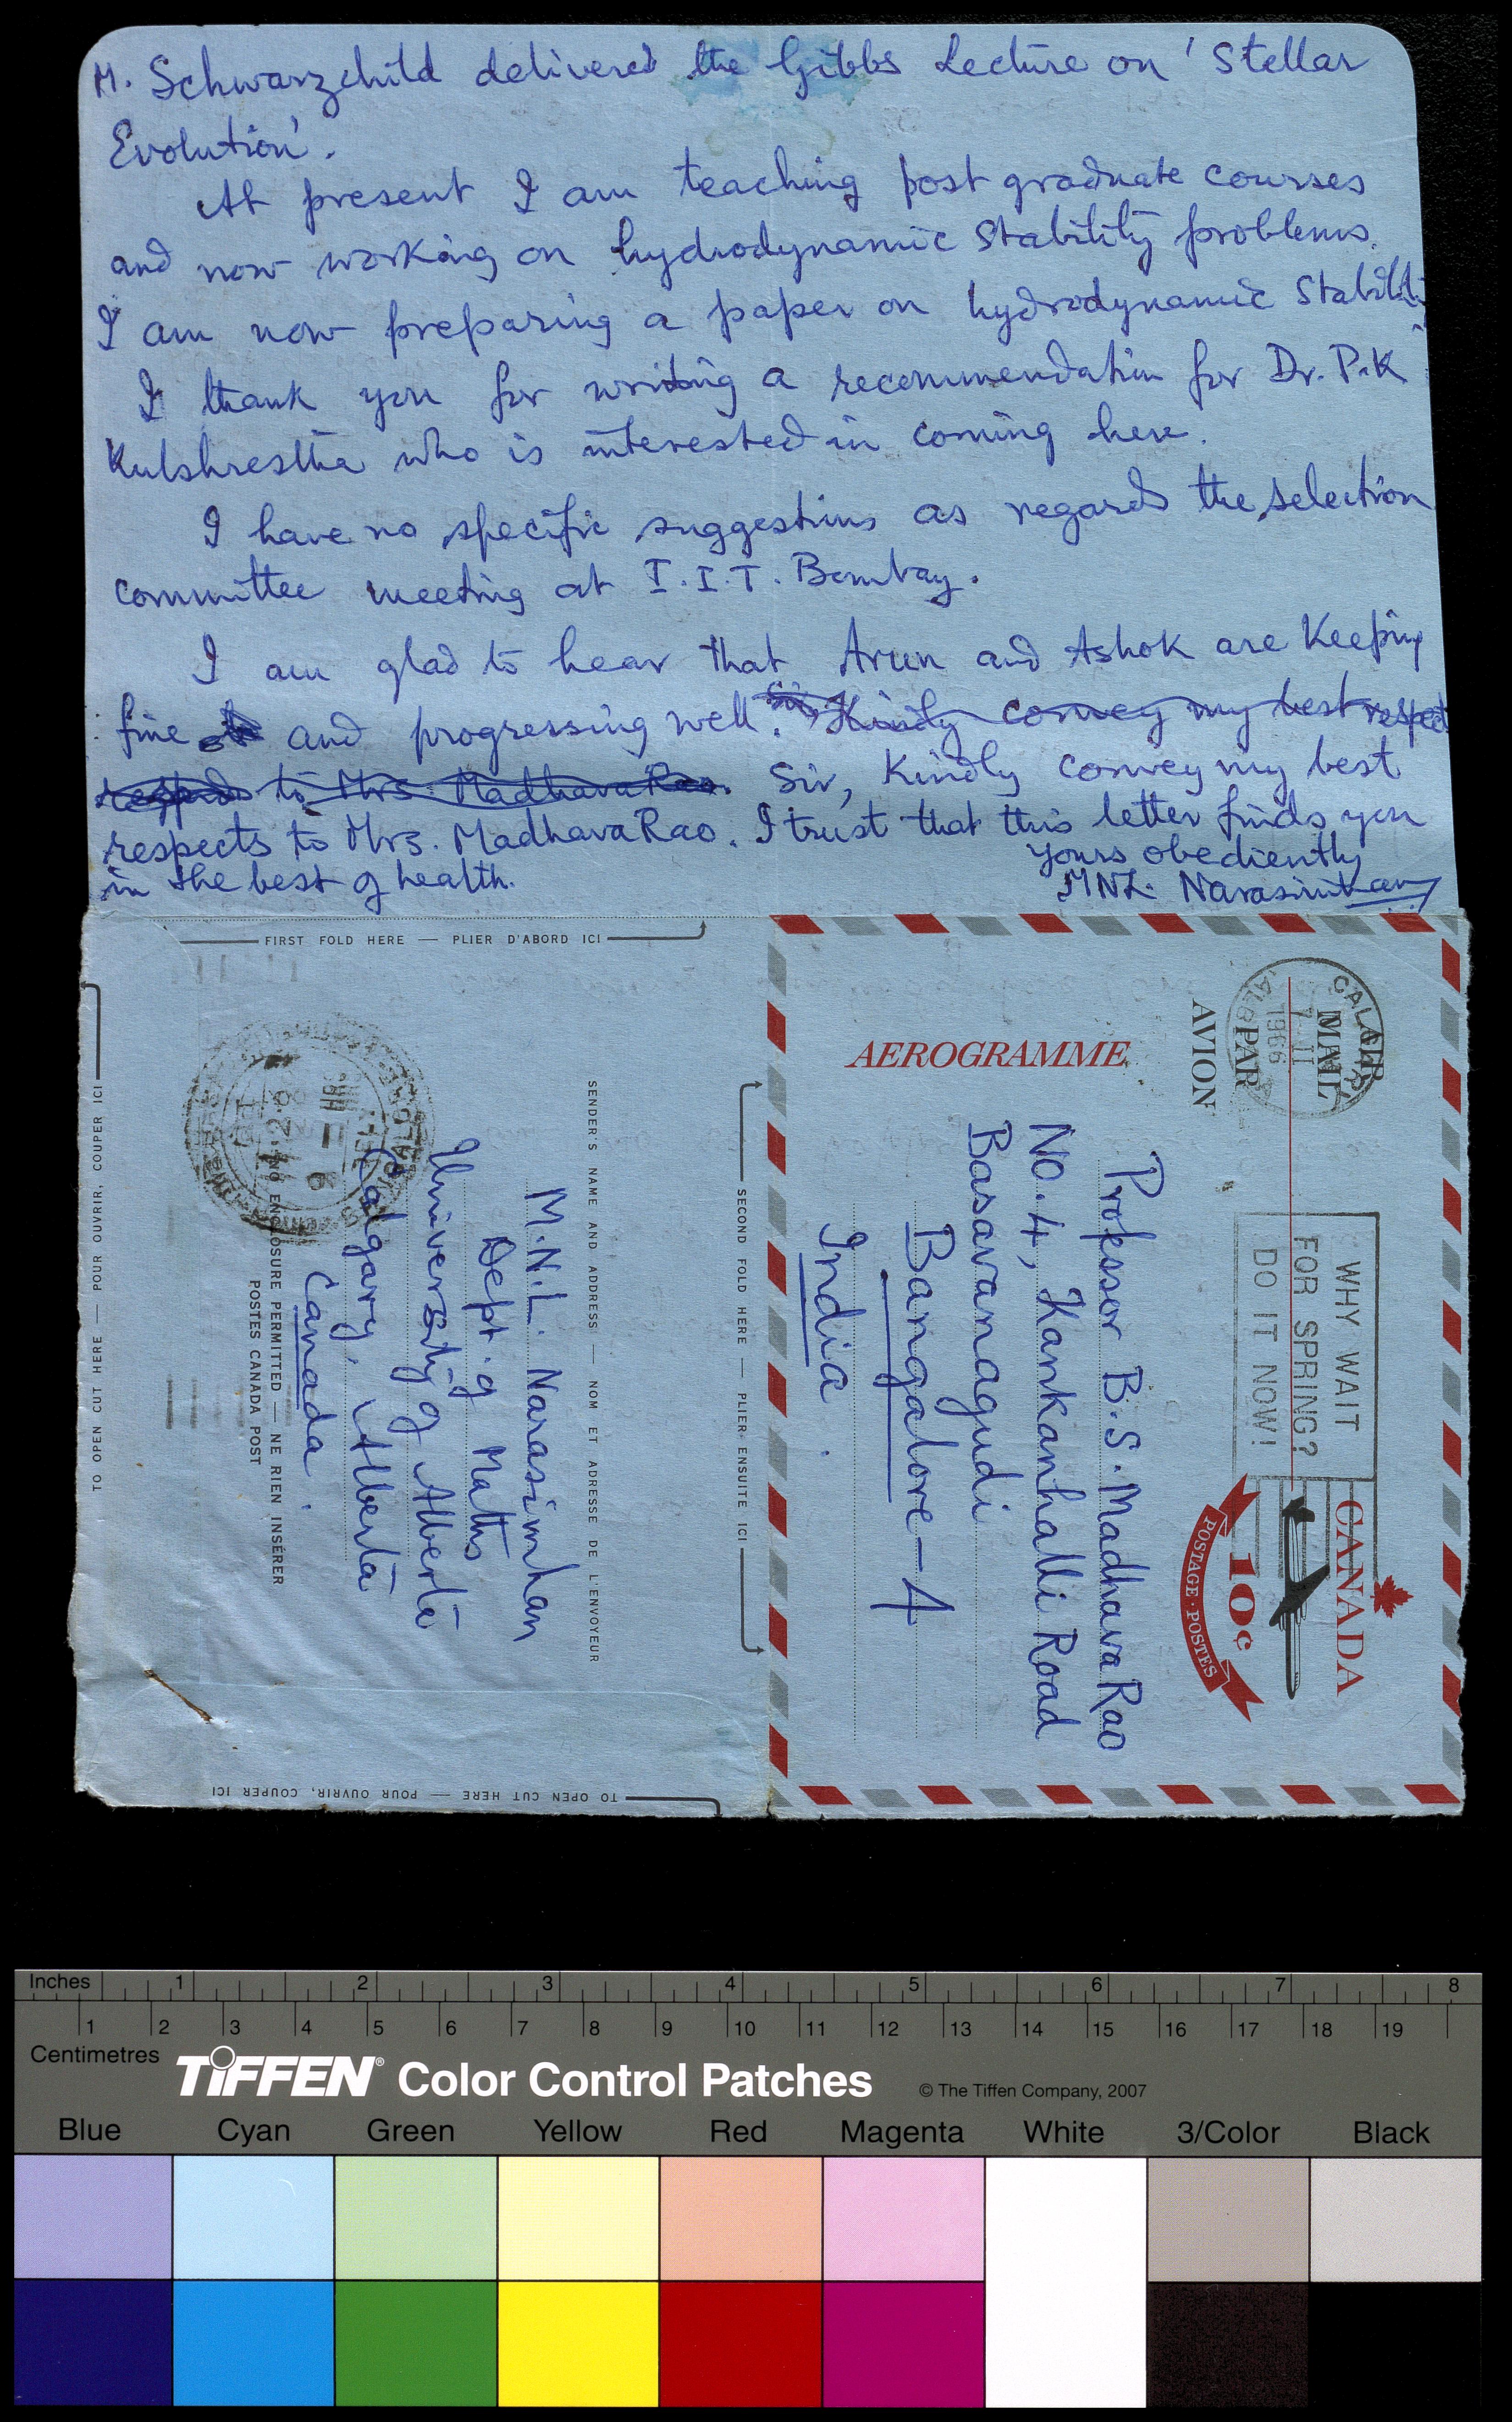 M. Schwarzchild delivered the Gibbs Lecture on 'Stellar
Evolution'.
At present I am teaching post graduate courses
and now working on hydrodynamic Stability problems.
I am now preparing a paper on hydrodynamic Stability
I thank you for writing a recommendation for Dr. P.K
Kulshrestha who is interested in coming here.
I have no specific suggestions as regards the selection
committee meeting at I.I.T. Bombay.
I am glad to hear that Arun and Ashok are Keeping
fine and progressing well. Kindly convey my best respect
respects to Mrs. MadhavaRao. Sir, Kindly convey my best
respects to Mrs. MadhavaRao. I trust that this letter finds you
in the best of health.
Yours obediently
MNL. Narasimhan
FIRST FOLD HERE — PLIER D'ABORD ICI
TO OPEN CUT HERE — POUR OUVRIR, COUPER ICI
SENDER'S NAME AND ADDRESS — NOM ET ADRESSE DE L'ENVOYEUR
M.N.L. Narasimhan
Dept. of Maths
University of Alberta
Calgary, Alberta
Canada.
NO ENCLOSURE PERMITTED — NE RIEN INSÉRER
POSTES CANADA POST
TO OPEN CUT HERE — POUR OUVRIR, COUPER ICI
SECOND FOLD HERE — PLIER ENSUITE ICI
AEROGRAMME
AIR MAIL
PAR AVION
CALGARY
7 II
1966
ALBERTA
WHY WAIT
FOR SPRING?
DO IT NOW!
CANADA
10¢
POSTAGE · POSTES
Professor B.S. Madhava Rao
No. 4, Kankanhalli Road
Basavanagudi
Bangalore — 4
India.
Inches 1 2 3 4 5 6 7 8
1 2 3 4 5 6 7 8 9 10 11 12 13 14 15 16 17 18 19
Centimetres
TIFFEN® Color Control Patches © The Tiffen Company, 2007
Blue Cyan Green Yellow Red Magenta White 3/Color Black